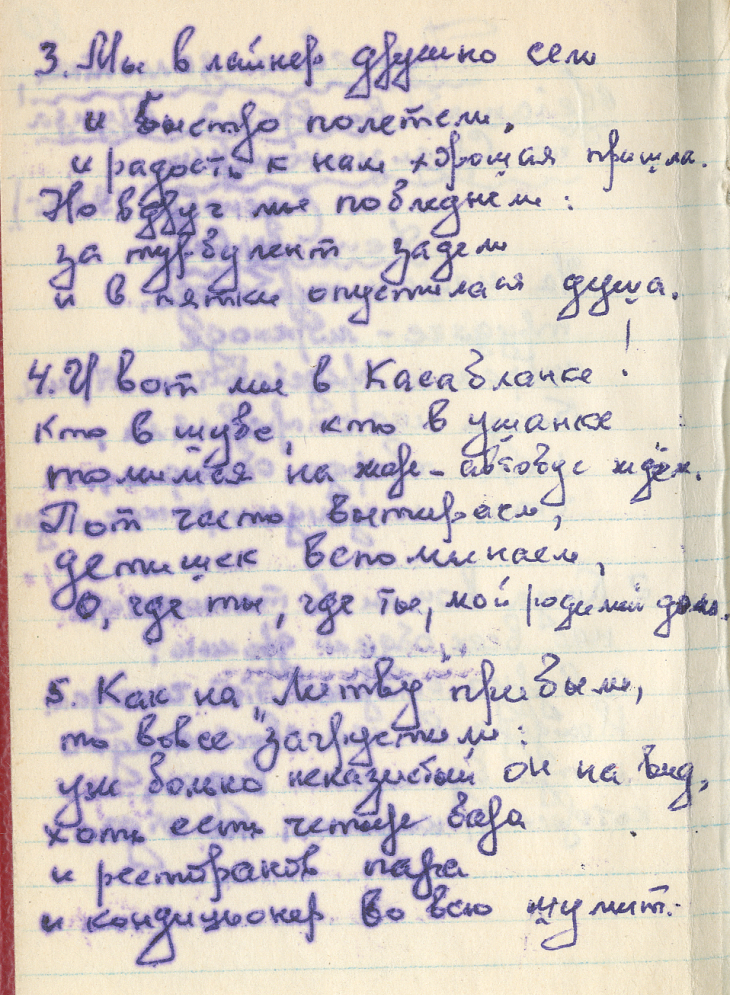 3. Мы в лайнер дружно сели
и быстро полетели,
и радость к нам хорошая пришла.
Но вдруг мы побледнели:
за турбулент задели
и в пятки опустилася душа.
4. И вот мы в Касабланке!
Кто в шубе, кто в ушанке
томимся на жаре – автобус ждём.
Пот часто вытираем,
детишек вспоминаем,
О, где ты, где ты, мой родимый дом.
5. Как на "Литву" прибыли,
то вовсе загрустили:
уж больно неказистый он на вид,
хоть есть четыре бара
и ресторанов пара
и кондиционер во всю шумит.